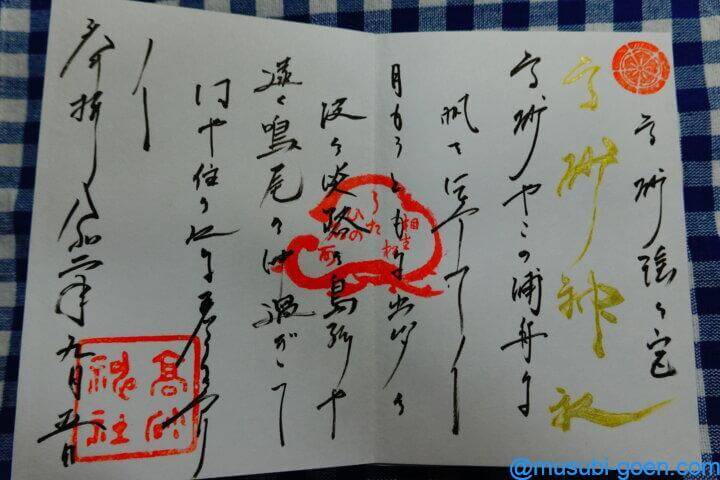 高砂神社
高砂やこの浦舟に
帆を上げて〱
月もろともに出汐の
波の淡路の島影や
遠く鳴尾の沖過ぎて
はや住の江に着きにけり
〱
奉拝 令和二年九月五日
相生松
うた
ひの
高砂
神社
@musubi-goen.com